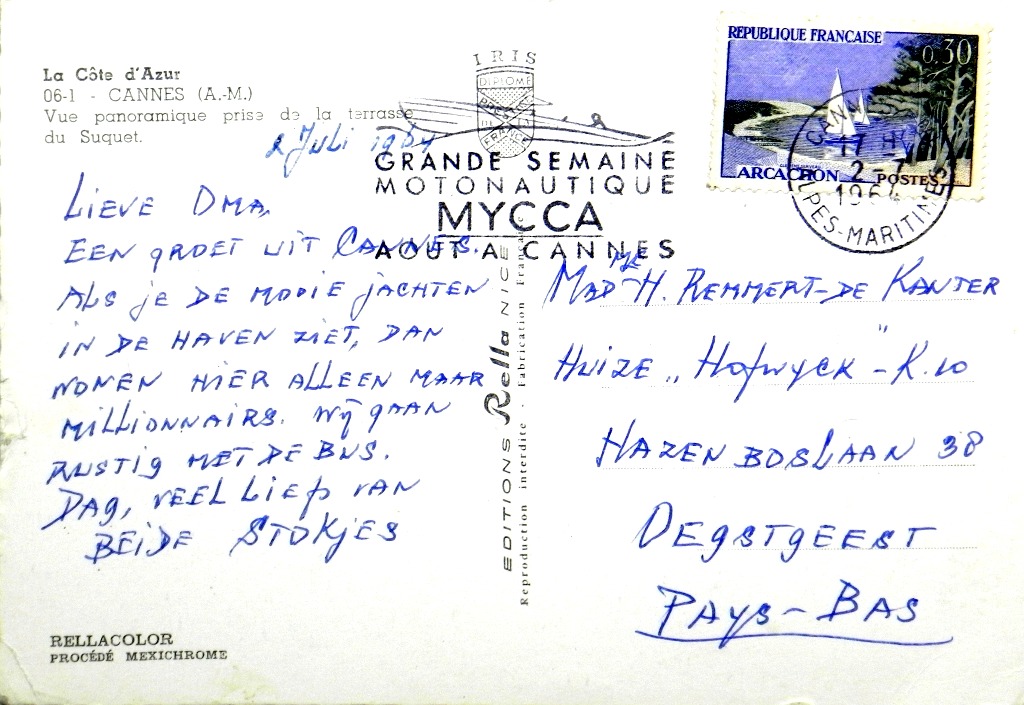 La Côte d'Azur
06-1 - CANNES (A.-M.)
Vue panoramique prise de la terrasse
du Suquet.
2 Juli 1964
LIEVE OMA,
EEN GROET UIT CANNES.
ALS je DE MOOIE jACHTEN
IN DE HAVEN ZIET, DAN
WONEN HIER ALLEEN MAAR
MILLIONNAIRS. Wij GAAN
RUSTIG MET DE BUS.
DAG, VEEL LIEfs VAN
BEIDE STOKjES
RELLACOLOR
PROCÉDÉ MEXICHROME
IRIS
DIPLOME
PRESTIGE
DE LA
FRANCE
GRANDE SEMAINE
MOTONAUTIQUE
MYCCA
AOUT A CANNES
EDITIONS Rella NICE
Reproduction interdite - Fabrication Française
REPUBLIQUE FRANÇAISE
0,30
ARCACHON POSTES
CANNES
17 H
2 - 7
1964
ALPES-MARITIMES
MADME H. REMMERT-DE KANTER
HUIZE „HOfWyCK" - K.10
HAZENBOSLAAN 38
OEGSTGEEST
PAyS-BAS